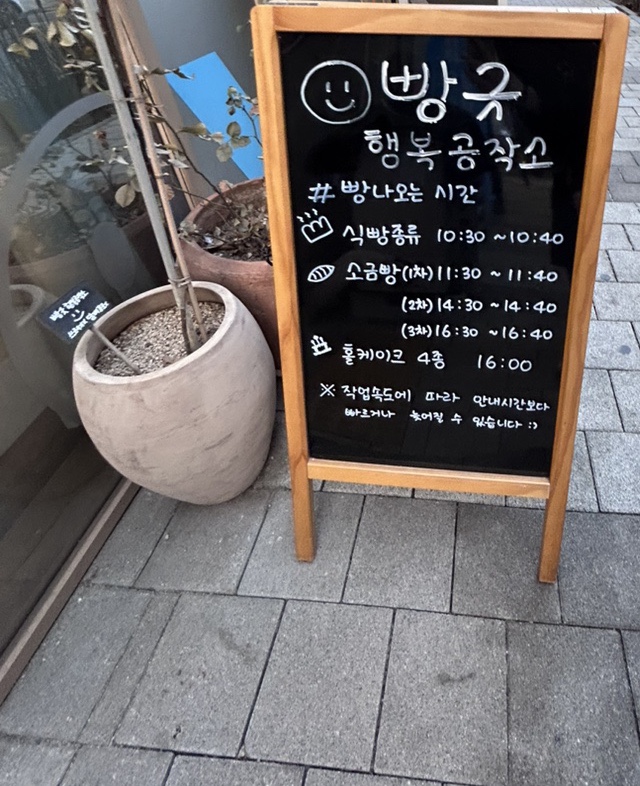 빵굿
행복공작소
# 빵나오는 시간
식빵종류 10:30 ~ 10:40
소금빵 (1차) 11:30 ~ 11:40
(2차) 14:30 ~ 14:40
(3차) 16:30 ~ 16:40
홀케이크 4종 16:00
※ 작업속도에 따라 안내시간보다
빠르거나 늦어질 수 있습니다 :)